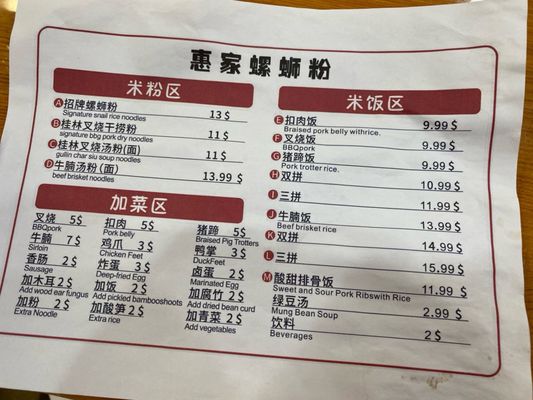 惠家螺蛳粉
米粉区
A 招牌螺蛳粉 13$
Signature snail rice noodles
B 桂林叉烧干捞粉 11$
signature bbg pork dry noodles
C 桂林叉烧汤粉(面) 11$
guilin char siu soup noodles
D 牛腩汤粉(面) 13.99$
beef brisket noodles
加菜区
叉烧 5$ 扣肉 5$ 猪蹄 5$
BBQpork Pork belly Braised Pig Trotters
牛腩 7$ 鸡爪 3$ 鸭掌 3$
Sirloin Chicken Feet DuckFeet
香肠 2$ 炸蛋 3$ 卤蛋 2$
Sausage Deep-fried Egg Marinated Egg
加木耳 2$ 加饭 2$ 加腐竹 2$
Add wood ear fungus Add pickled bambooshoots Add dried bean curd
加粉 2$ 加酸笋 2$ 加青菜 2$
Extra Noodle Extra rice Add vegetables
米饭区
E 扣肉饭 9.99$
Braised pork belly withrice.
F 叉烧饭 9.99$
BBQpork
G 猪蹄饭 9.99$
Pork trotter rice.
H 双拼 10.99$
I 三拼 11.99$
J 牛腩饭 13.99$
Beef brisket rice
K 双拼 14.99$
L 三拼 15.99$
M 酸甜排骨饭 11.99$
Sweet and Sour Pork Ribswith Rice
绿豆汤 2.99$
Mung Bean Soup
饮料 2$
Beverages